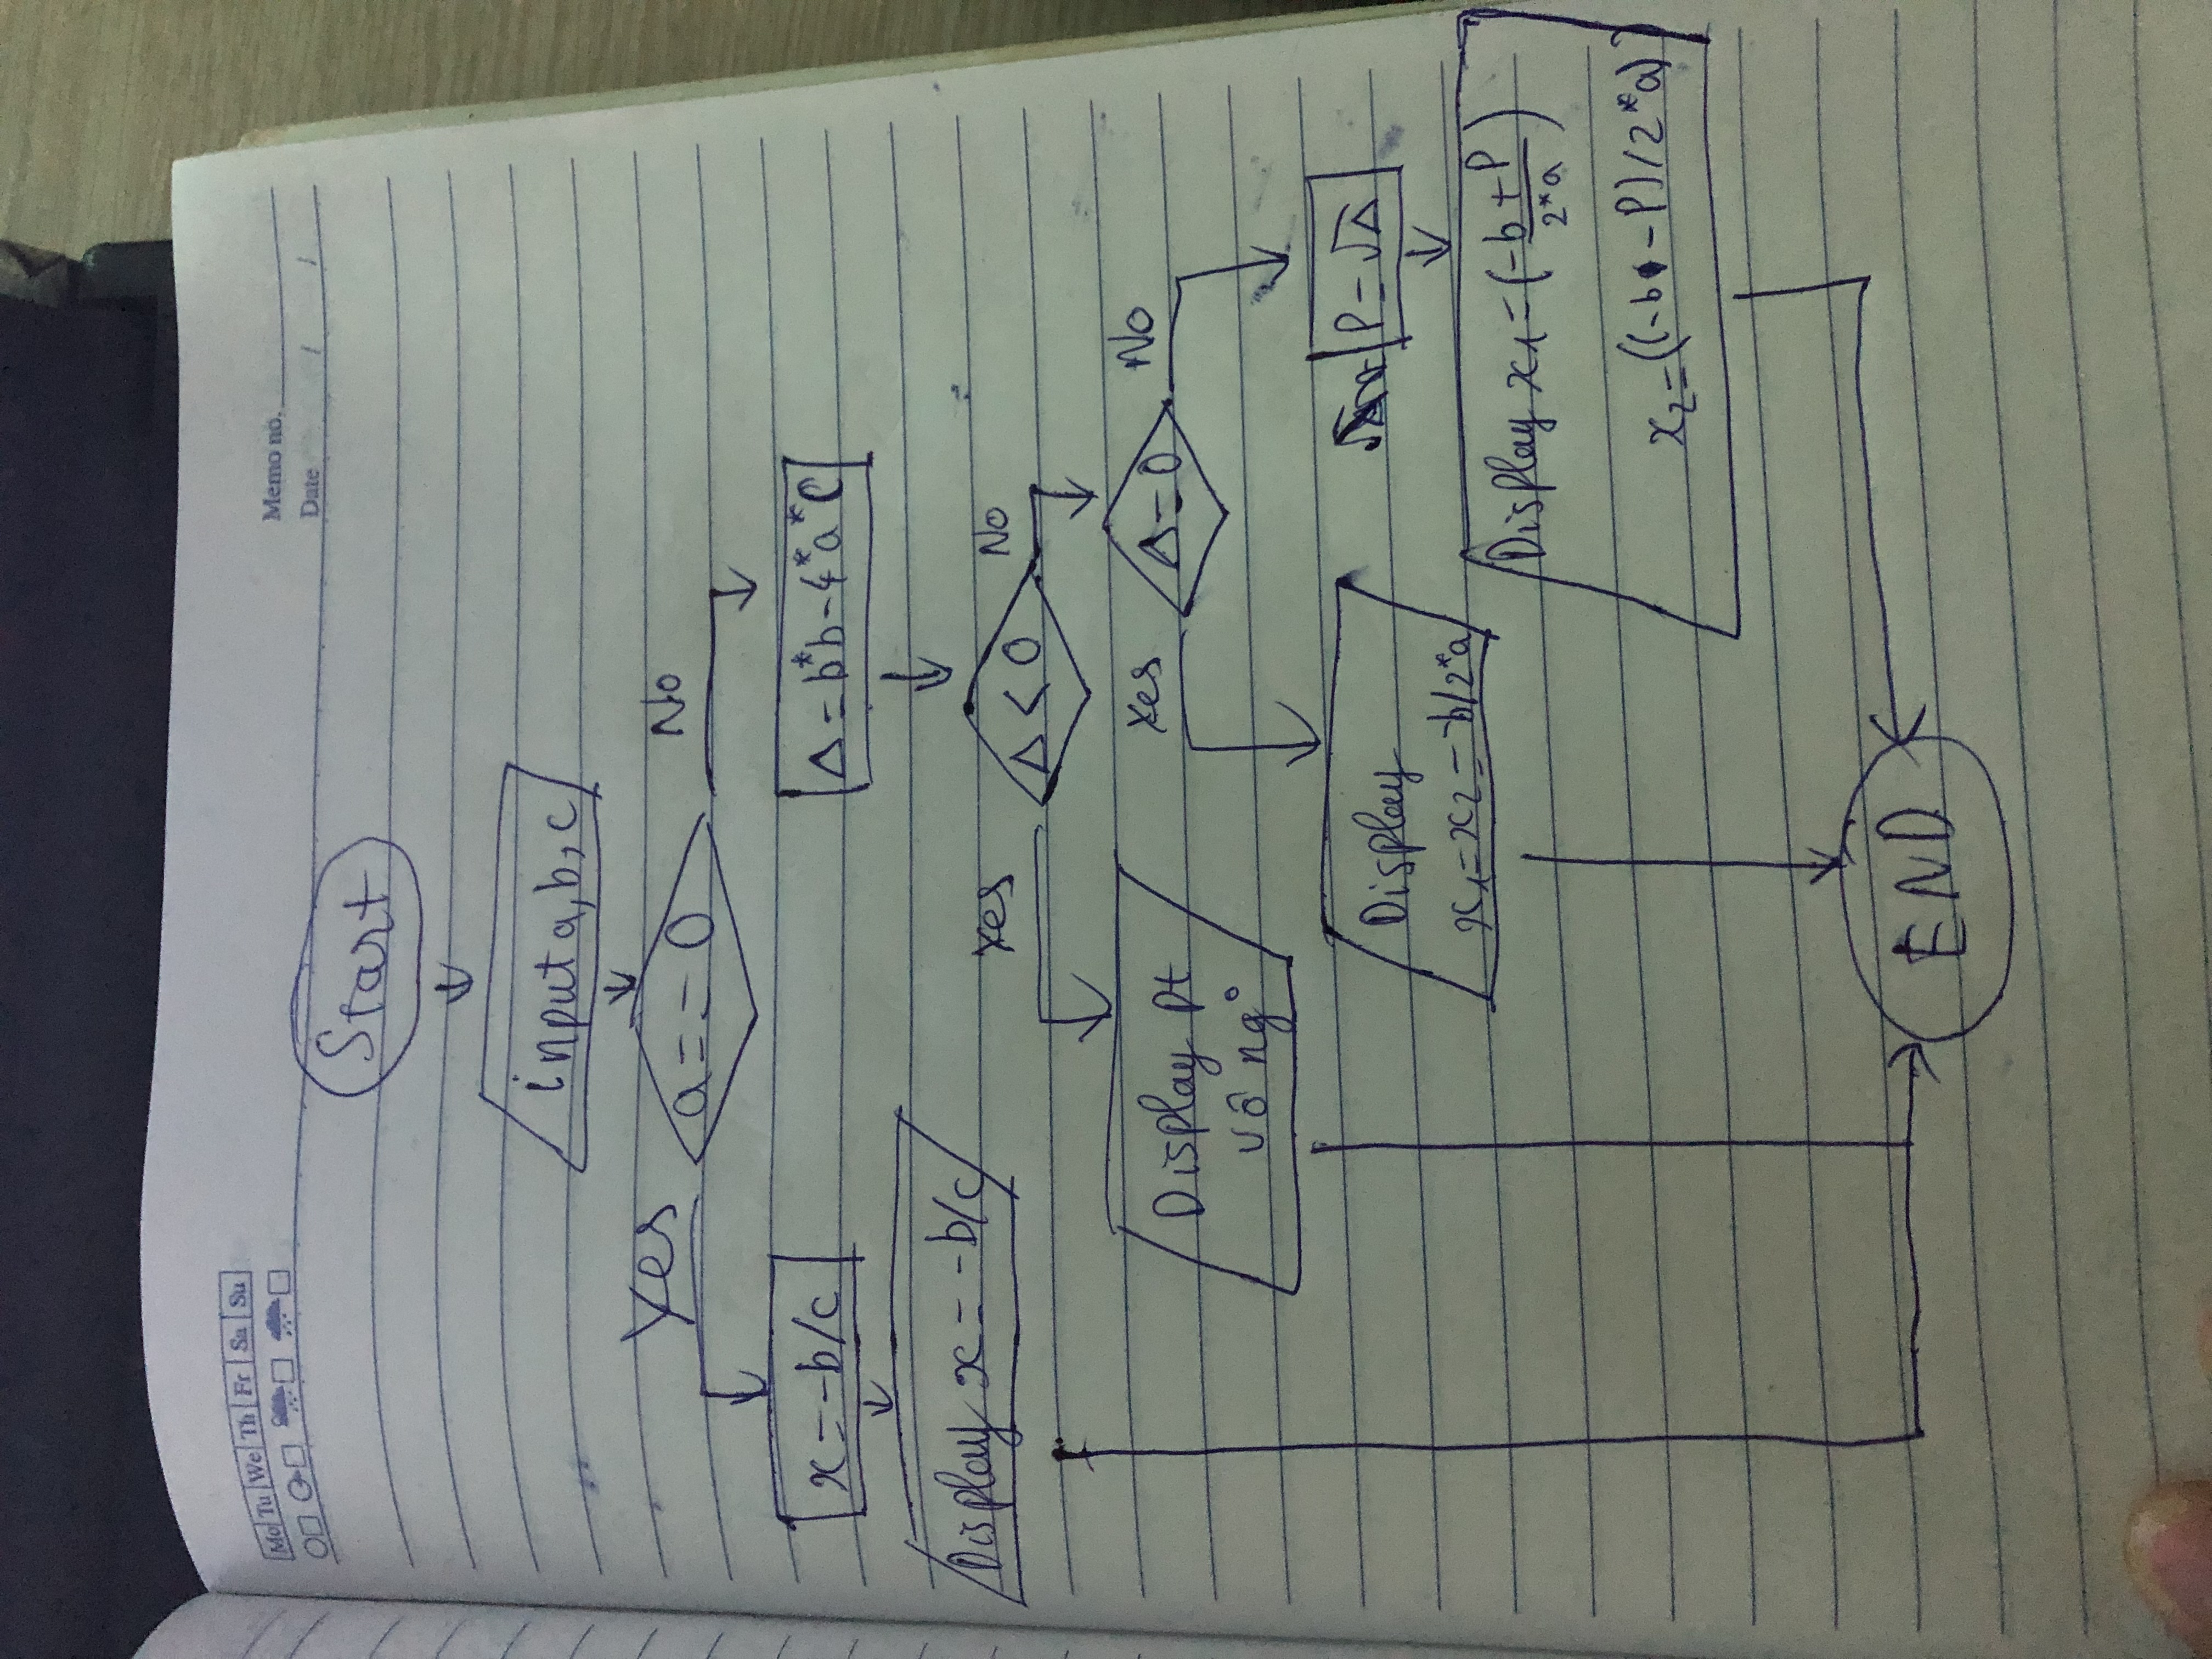 Mo Tu We Th Fr Sa Su
Memo no.
Date / /
Start
input a, b, c
Yes
a == 0
No
x = -b/c
Δ = b*b - 4*a*c
Display x = -b/c
Yes
Δ < 0
No
Yes
Δ = 0
No
Display pt
vô ngº
Display
x1 = x2 = -b/2*a
P = √Δ
Display x1 = (-b + P / 2*a)
x2 = ((-b - P) / 2*a)
END